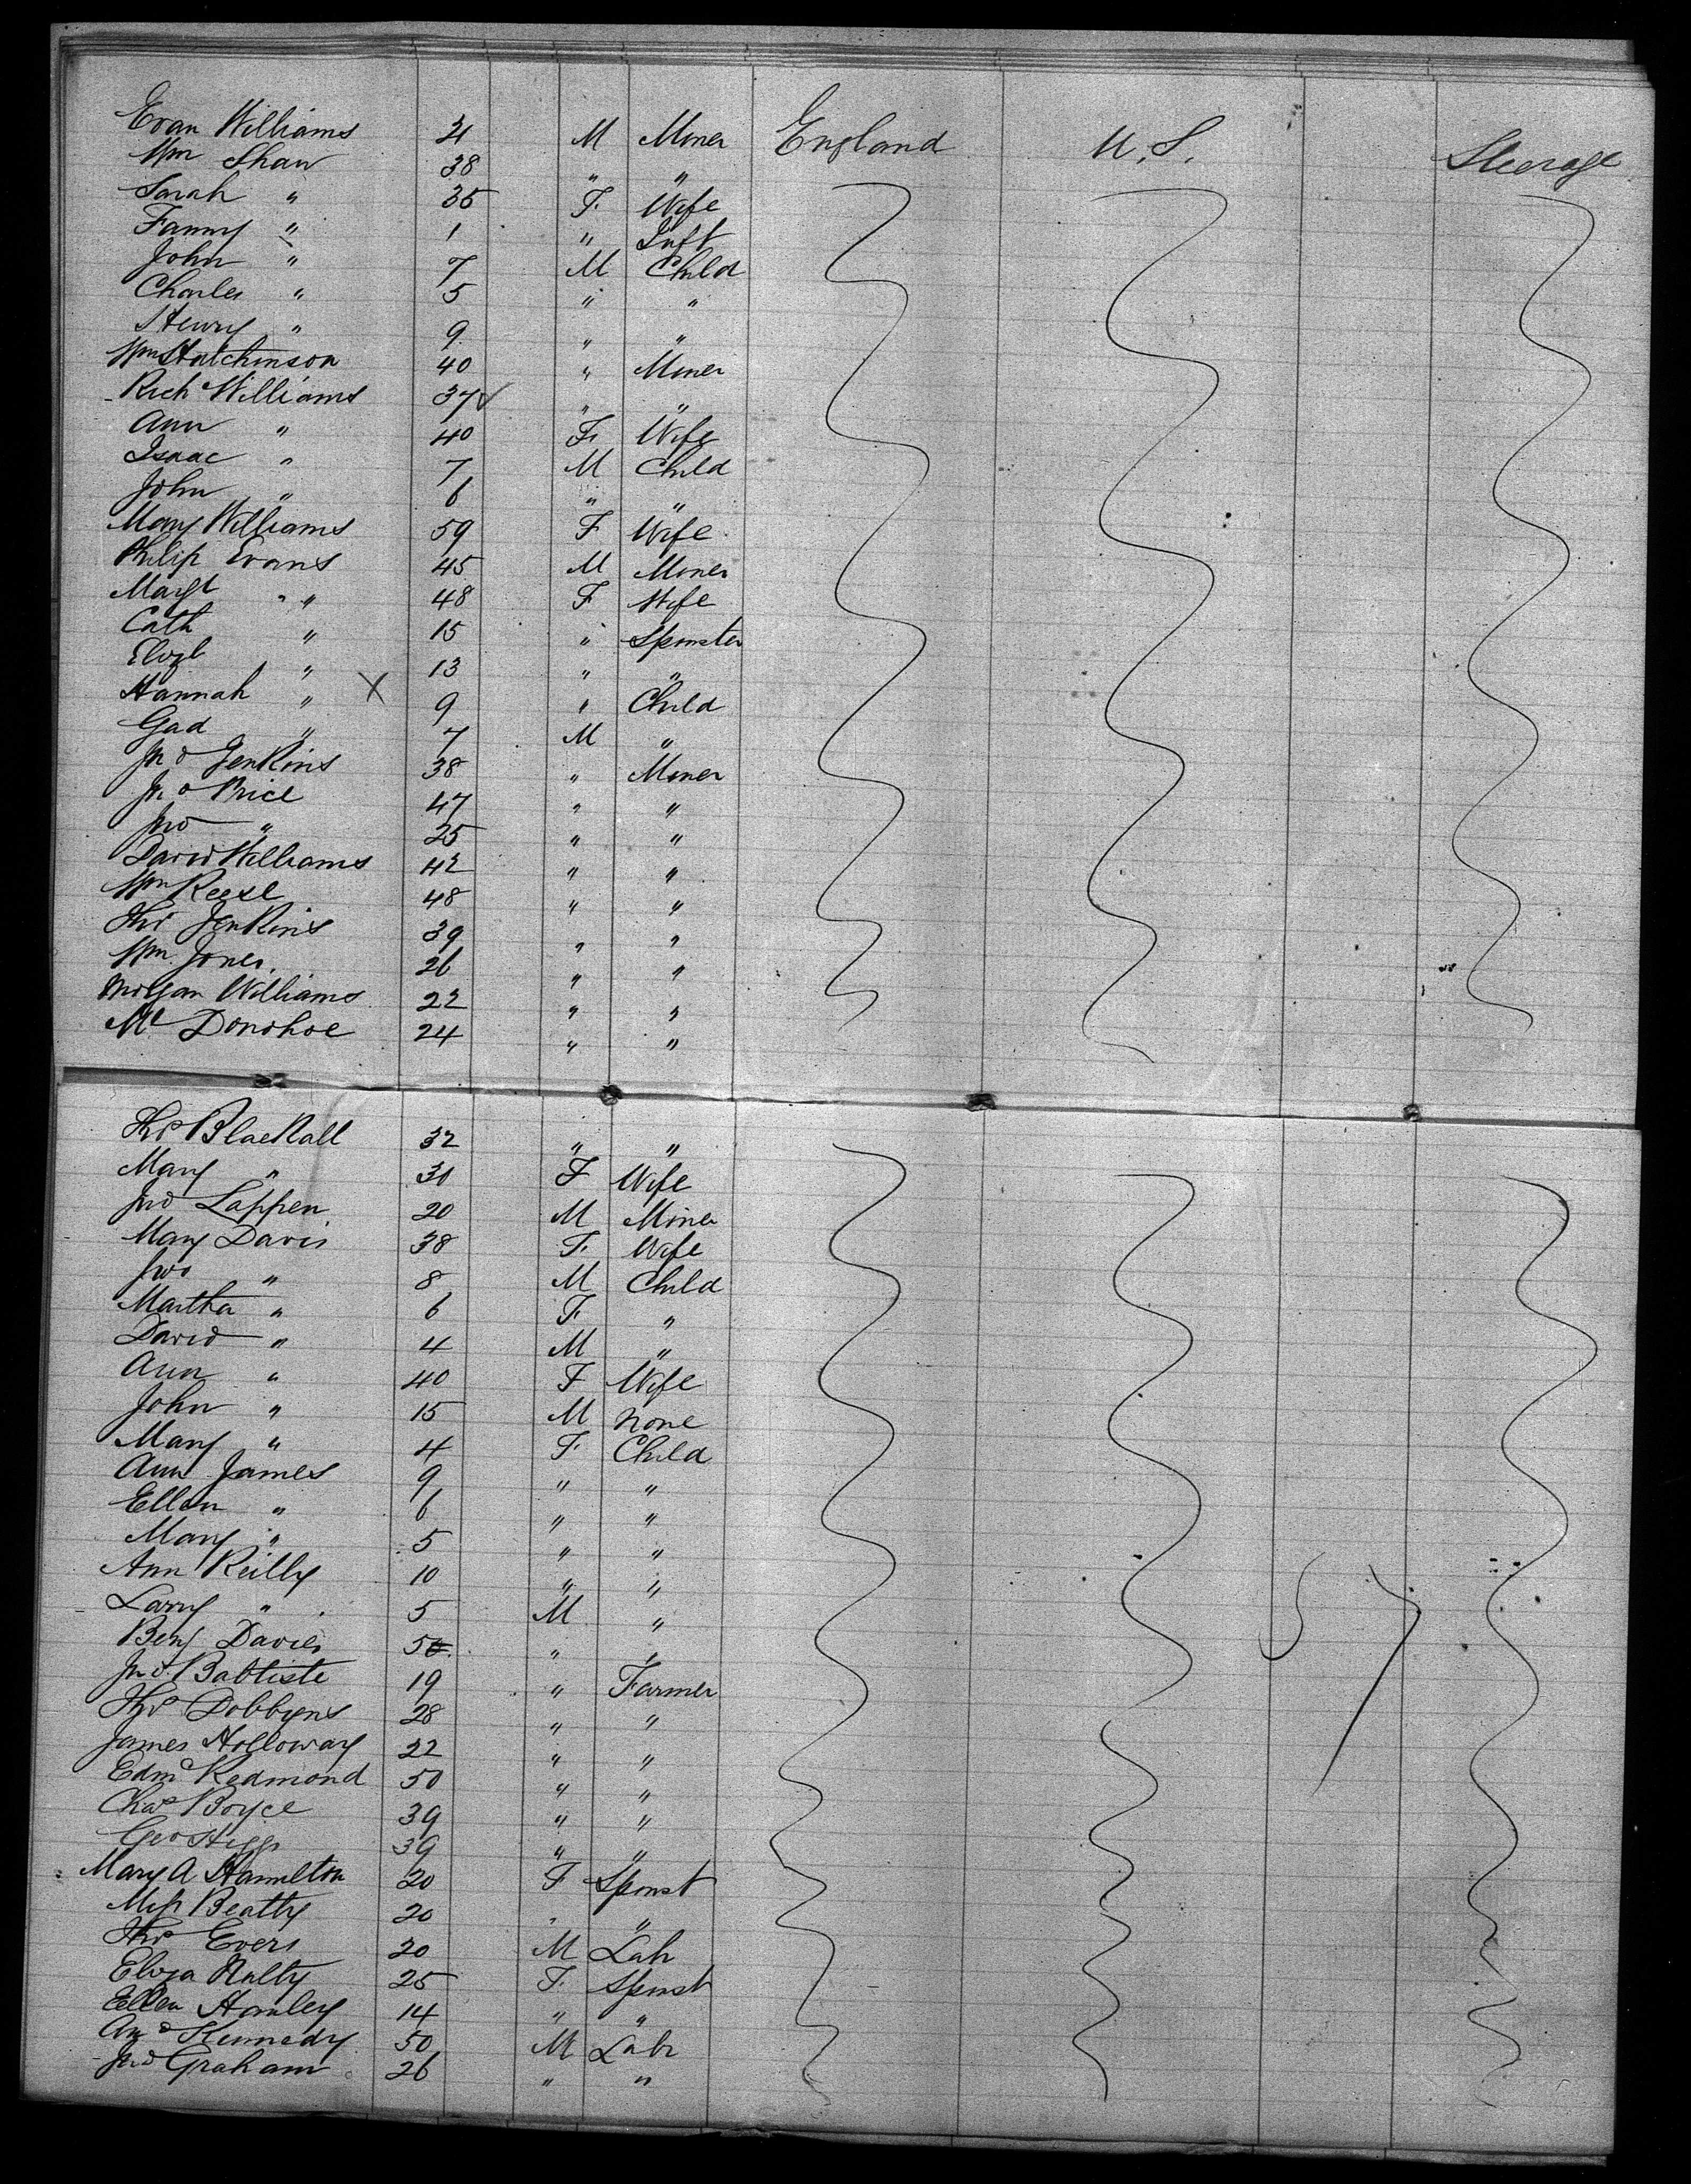 Evan Williams 21 M Miner England U.S. Steerage
Wm Shaw 38 " "
Sarah " 35 F. Wife
Fanny " 1 " Inft
John " 7 M Child
Charles " 5 " "
Henry " 9 " "
Wm Hutchinson 40 " Miner
Rich Williams 37 " "
Ann " 40 F. Wife
Isaac " 7 M Child
John " 6 " "
Mary Williams 59 F Wife
Philip Evans 45 M Miner
Margt " 48 F Wife
Cath " 15 " Spinster
Elizb " 13 " "
Hannah " X 9 " Child
Gad " 7 M "
Jno Jenkins 38 " Miner
Jno Price 47 " "
Jno " 25 " "
David Williams 42 " "
Wm Reese 48 " "
Thos Jenkins 39 " "
Wm Jones. 26 " "
Morgan Williams 22 " "
Mc Donohoe 24 " "
Thos Blackall 32 " "
Mary " 30 F Wife
Jno Lappen 20 M Miner
Mary Davis 38 F. Wife
Jno " 8 M Child
Martha " 6 F. "
David " 4 M "
Ann " 40 F Wife
John " 15 M none
Mary " 4 F. Child
Ann James 9 " "
Ellen " 6 " "
Mary " 5 " "
Ann Reilly 10 " "
Larry " 5 M "
Benj Davies 50 " "
Jno Babtiste 19 " Farmer
Thos Dobbyns 28 " "
James Holloway 22 " "
Edmd Redmond 50 " "
Chas Boyce 39 " "
Geo Higgs 39 " "
Mary A Hamilton 20 F Spinst
Miss Beatty 20 " "
Thos Evers 20 M Lab
Eliza Nalty 25 F. Spinst
Ellen Hanley 14 " "
And Kennedy 50 M Labr
Jno Graham 26 " "